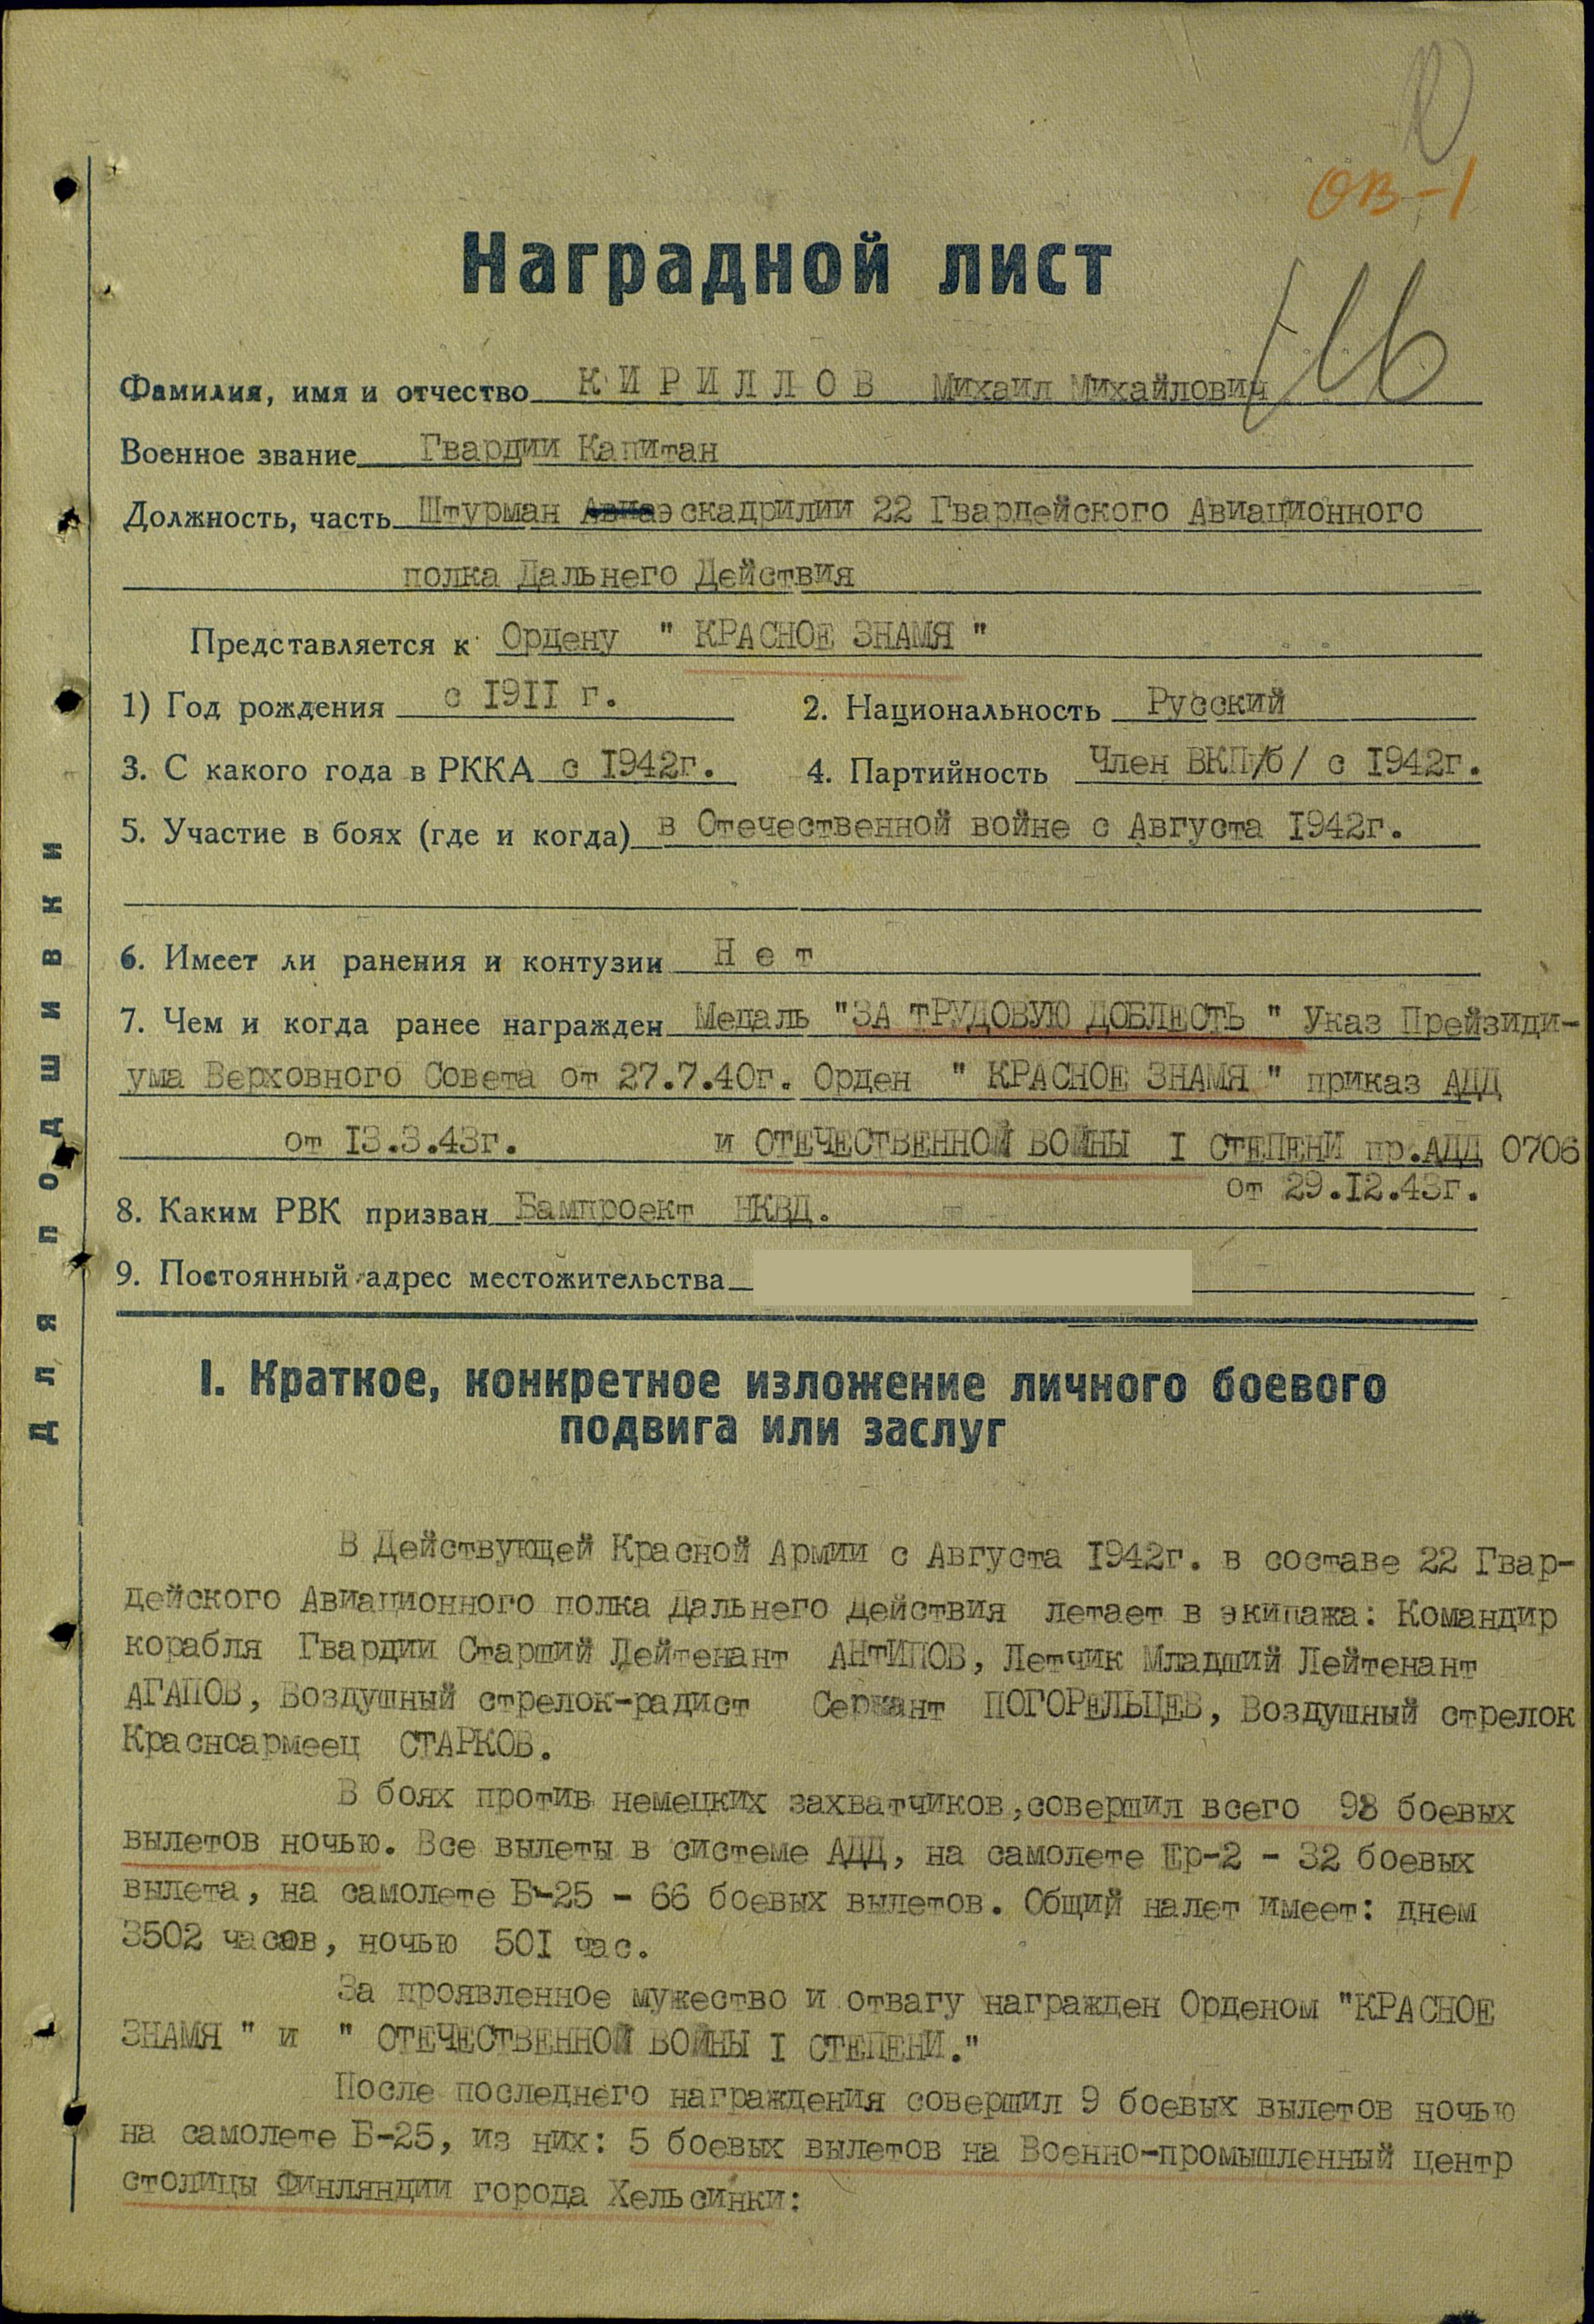 ОВ-1
Наградной лист
116
Фамилия, имя и отчество КИРИЛЛОВ Михаил Михайлович
Военное звание Гвардии Капитан
Должность, часть Штурман Авиаэскадрилии 22 Гвардейского Авиационного
полка Дальнего Действия
Представляется к Ордену " КРАСНОЕ ЗНАМЯ "
1) Год рождения с 1911 г. 2. Национальность Русский
3. С какого года в РККА с 1942г. 4. Партийность Член ВКП/б/ с 1942г.
5. Участие в боях (где и когда) в Отечественной войне с Августа 1942г.
6. Имеет ли ранения и контузии Нет
7. Чем и когда ранее награжден Медаль "ЗА ТРУДОВУЮ ДОБЛЕСТЬ " Указ Прейзиди-
ума Верховного Совета от 27.7.40г. Орден " КРАСНОЕ ЗНАМЯ " приказ АДД
от 13.3.43г. и ОТЕЧЕСТВЕННОЙ ВОЙНЫ I СТЕПЕНИ пр.АДД 0706
от 29.12.43г.
8. Каким РВК призван Бампроект НКВД.
9. Постоянный адрес местожительства
Для подшивки
I. Краткое, конкретное изложение личного боевого
подвига или заслуг
В Действующей Красной Армии с Августа 1942г. в составе 22 Гвар-
дейского Авиационного полка Дальнего Действия летает в экипажа: Командир
корабля Гвардии Старший Лейтенант АНТИПОВ, Летчик Младший Лейтенант
АГАПОВ, Воздушный стрелок-радист Сержант ПОГОРЕЛЬЦЕВ, Воздушный стрелок
Красноармеец СТАРКОВ.
В боях против немецких захватчиков, совершил всего 98 боевых
вылетов ночью. Все вылеты в системе АДД, на самолете Ер-2 - 32 боевых
вылета, на самолете Б-25 - 66 боевых вылетов. Общий налет имеет: днем
3502 часов, ночью 501 час.
За проявленное мужество и отвагу награжден Орденом "КРАСНОЕ
ЗНАМЯ " и " ОТЕЧЕСТВЕННОЙ ВОЙНЫ I СТЕПЕНИ."
После последнего награждения совершил 9 боевых вылетов ночью
на самолете Б-25, из них: 5 боевых вылетов на Военно-промышленный центр
столицы Финляндии города Хельсинки: